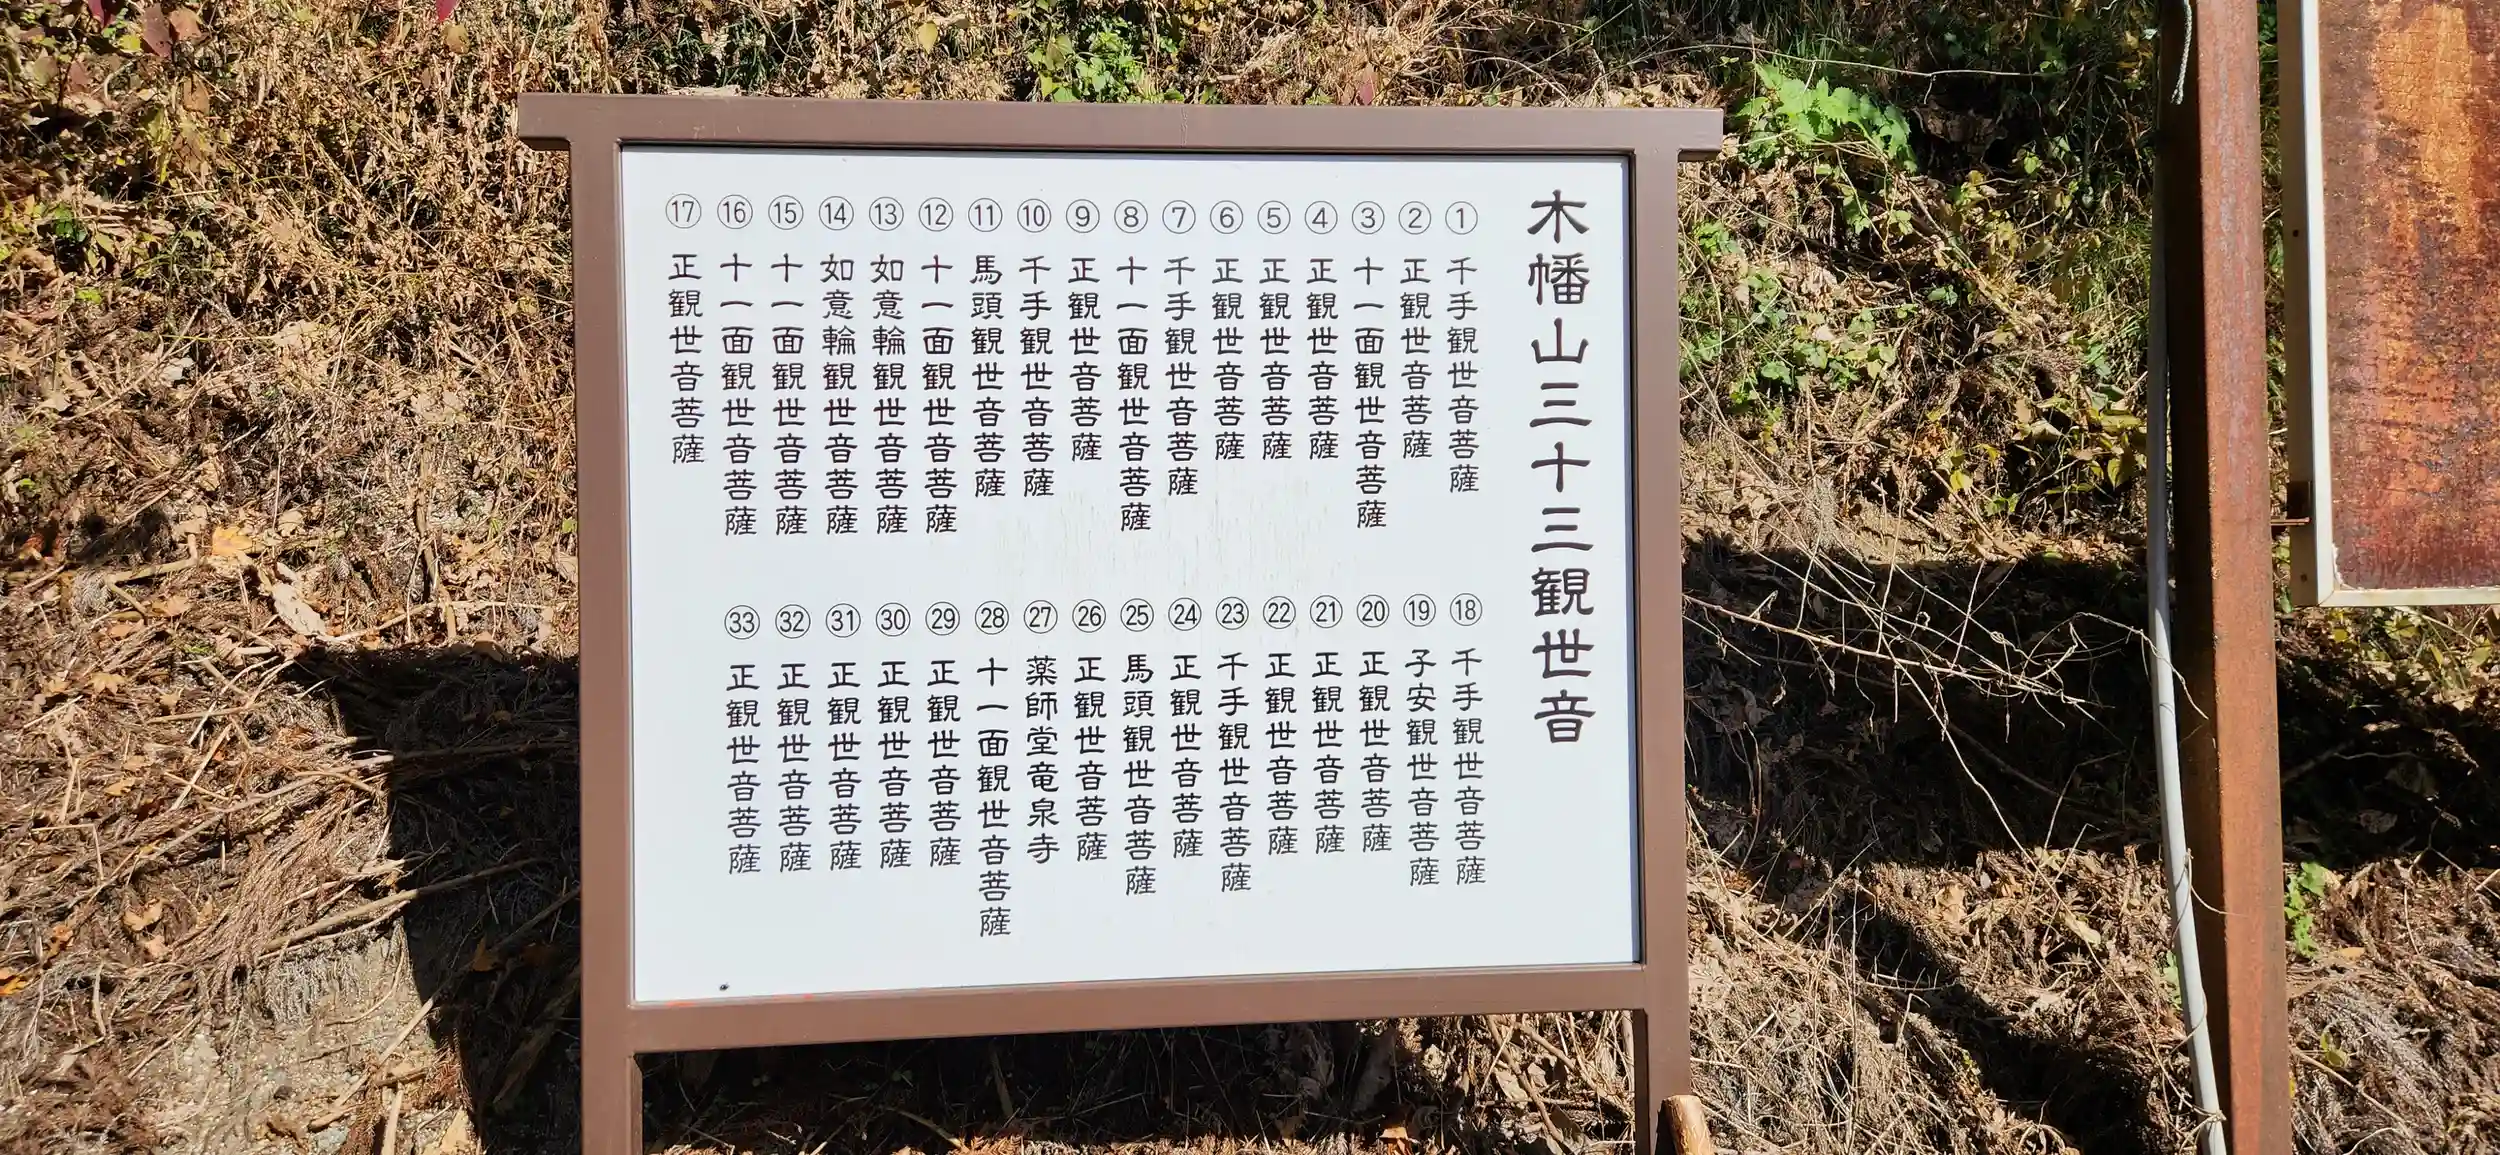 木幡山三十三観世音
① 千手観世音菩薩
② 正観世音菩薩
③ 十一面観世音菩薩
④ 正観世音菩薩
⑤ 正観世音菩薩
⑥ 正観世音菩薩
⑦ 千手観世音菩薩
⑧ 十一面観世音菩薩
⑨ 正観世音菩薩
⑩ 千手観世音菩薩
⑪ 馬頭観世音菩薩
⑫ 十一面観世音菩薩
⑬ 如意輪観世音菩薩
⑭ 如意輪観世音菩薩
⑮ 十一面観世音菩薩
⑯ 十一面観世音菩薩
⑰ 正観世音菩薩
⑱ 千手観世音菩薩
⑲ 子安観世音菩薩
⑳ 正観世音菩薩
㉑ 正観世音菩薩
㉒ 正観世音菩薩
㉓ 千手観世音菩薩
㉔ 正観世音菩薩
㉕ 馬頭観世音菩薩
㉖ 正観世音菩薩
㉗ 薬師堂竜泉寺
㉘ 十一面観世音菩薩
㉙ 正観世音菩薩
㉚ 正観世音菩薩
㉛ 正観世音菩薩
㉜ 正観世音菩薩
㉝ 正観世音菩薩